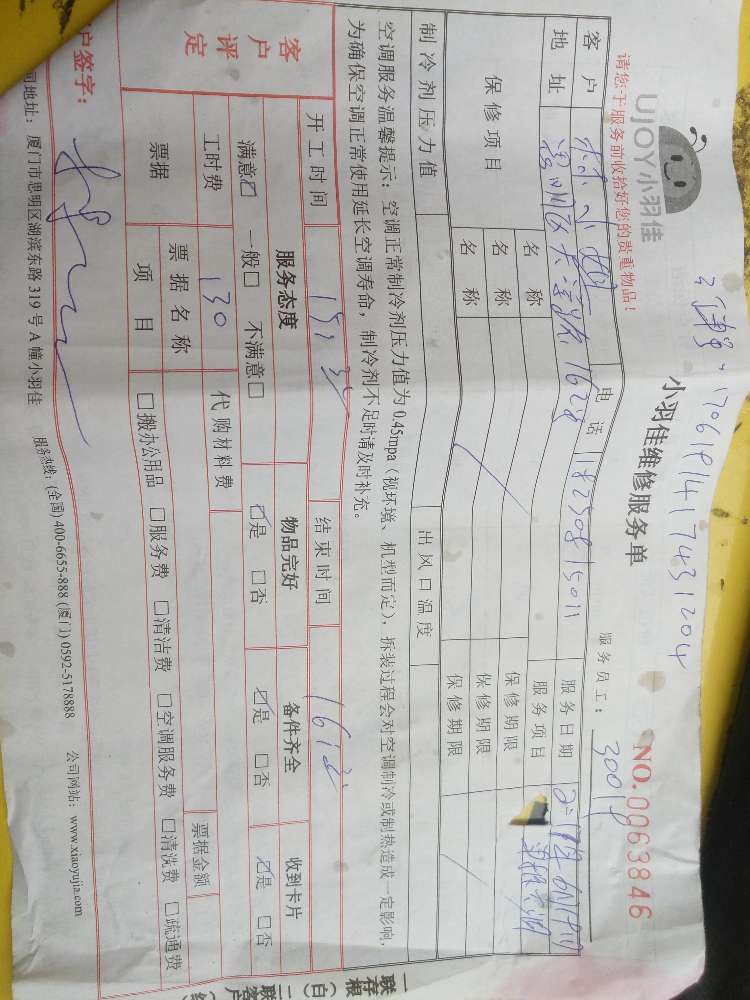 1706191417431204
UJOY小羽佳
小羽佳维修服务单
NO.0063846
请您于服务前收拾好您的贵重物品！
服务员工：
客户
电话
服务日期
地址
服务项目
保修项目
名称
保修期限
名称
保修期限
名称
保修期限
制冷剂压力值
出风口温度
空调服务温馨提示：空调正常制冷剂压力值为0.45mpa（视环境、机型而定），拆装过程会对空调制冷或制热造成一定影响，
为确保空调正常使用延长空调寿命，制冷剂不足时请及时补充。
开工时间
结束时间
客户评定
服务态度
物品完好
备件齐全
收到卡片
满意☑ 一般□ 不满意□
☑是 □否
☑是 □否
☑是 □否
工时费
130
代购材料费
票据
票据名称
票据金额
项目
□搬办公用品 □服务费 □清洁费 □空调服务费 □清洗费 □疏通费
户签字：
司地址：厦门市思明区湖滨东路319号A幢小羽佳
服务热线：(全国) 400-6655-888 (厦门) 0592-5178888
公司网站：www.xiaoyujia.com
一联存根（白）二联客户